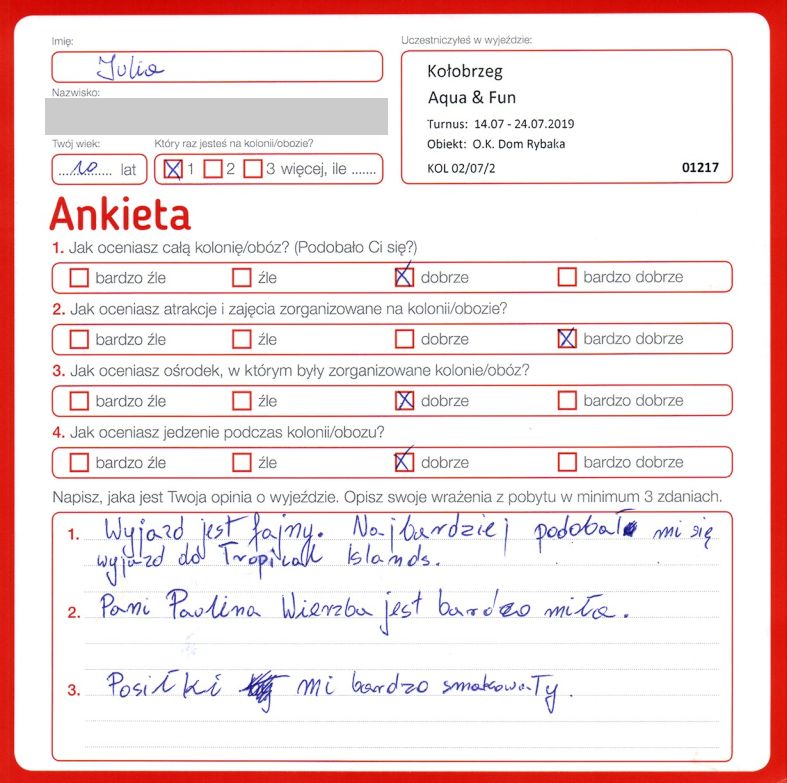 Imię:
Julia
Nazwisko:
Twój wiek:
10 lat
Który raz jesteś na kolonii/obozie?
1 2 3 więcej, ile .......
Uczestniczyłeś w wyjeździe:
Kołobrzeg
Aqua & Fun
Turnus: 14.07 - 24.07.2019
Obiekt: O.K. Dom Rybaka
KOL 02/07/2 01217
Ankieta
1. Jak oceniasz całą kolonię/obóz? (Podobało Ci się?)
bardzo źle źle dobrze bardzo dobrze
2. Jak oceniasz atrakcje i zajęcia zorganizowane na kolonii/obozie?
bardzo źle źle dobrze bardzo dobrze
3. Jak oceniasz ośrodek, w którym były zorganizowane kolonie/obóz?
bardzo źle źle dobrze bardzo dobrze
4. Jak oceniasz jedzenie podczas kolonii/obozu?
bardzo źle źle dobrze bardzo dobrze
Napisz, jaka jest Twoja opinia o wyjeździe. Opisz swoje wrażenia z pobytu w minimum 3 zdaniach.
1. Wyjazd jest fajny. Najbardziej podobał mi się
wyjazd do Tropical Islands.
2. Pani Paulina Wierzba jest bardzo miła.
3. Posiłki mi bardzo smakowały.